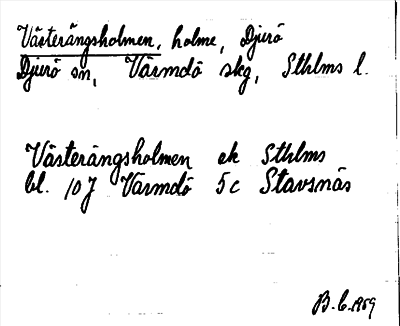 Västerängsholmen, holme, Djurö
Djurö sn, Värmdö skg, Sthlms l.
Västerängsholmen ek Sthlms
bl. 10J Värmdö 5c Stavsnäs
B.C. 1959